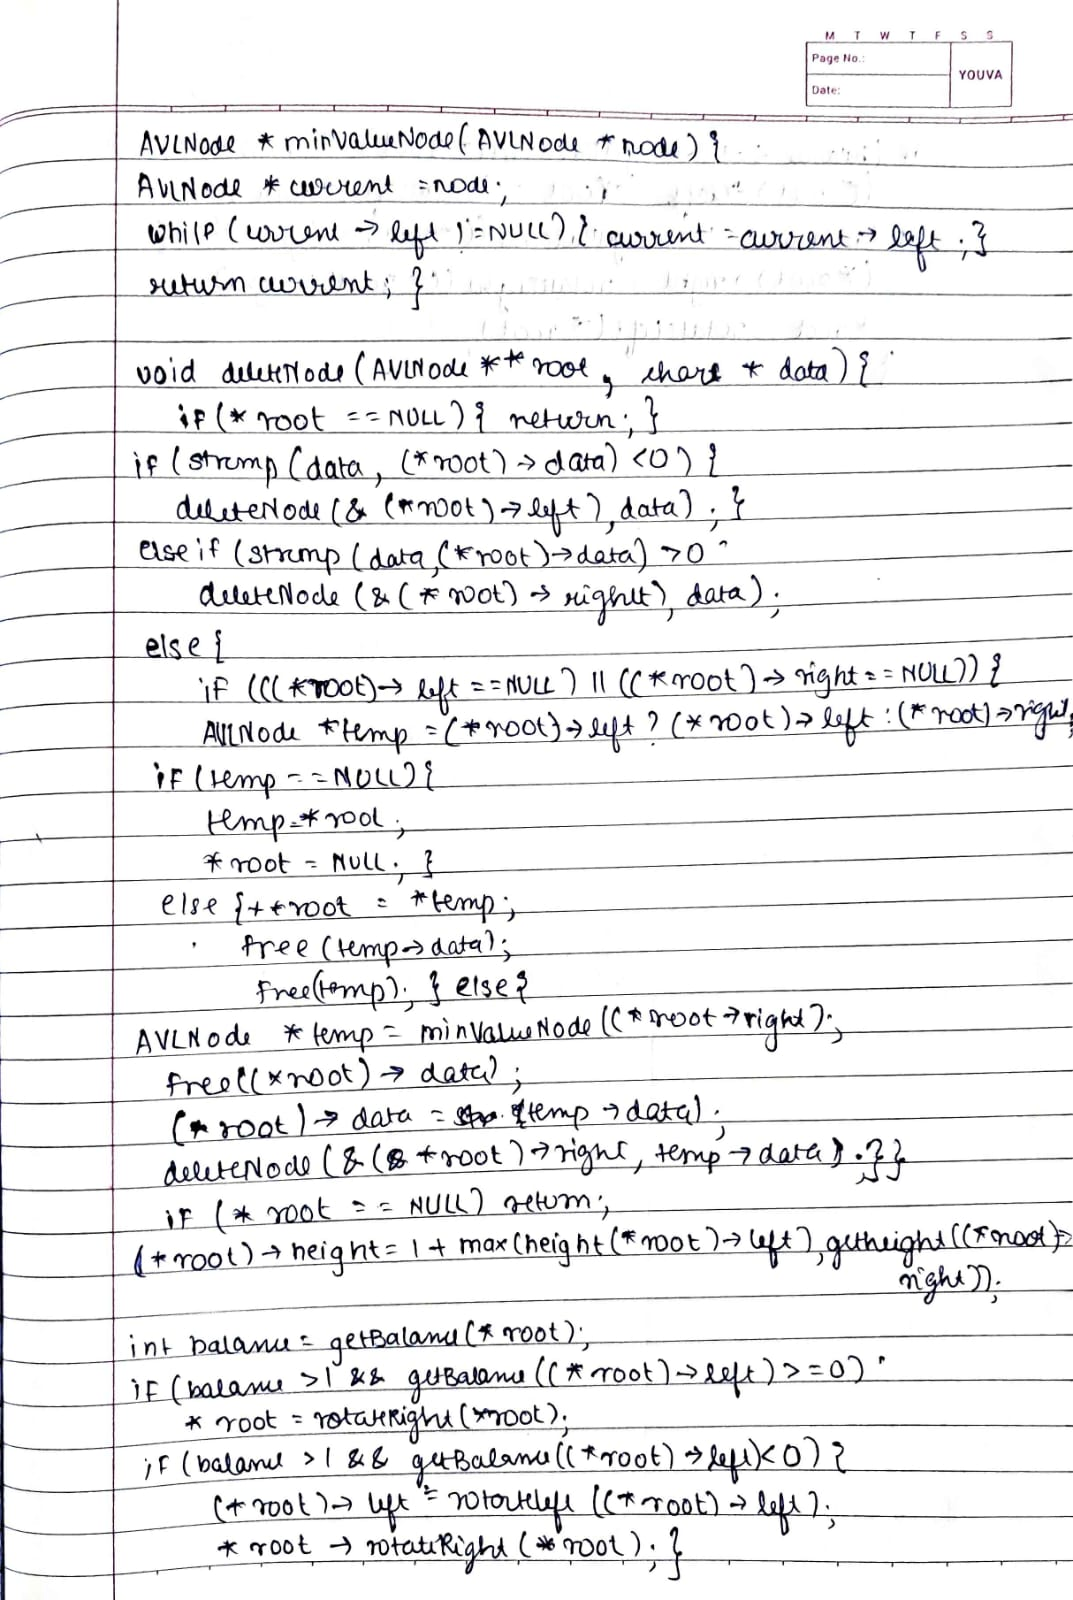 M T W T F S S
Page No.:
YOUVA
Date:
AVLNode * minValueNode( AVLNode * node) {
AVLNode * current = node;
while (current → left != NULL) { current = current → left ; }
return current; }
void deleteNode (AVLNode ** root , char * data) {
if (* root == NULL) { return ; }
if (strcmp (data, (*root) → data) <0) {
deleteNode (& (*root) → left), data) ; }
else if (strcmp (data, (*root) → data) >0
deleteNode (& (* root) → right), data) ;
else {
if (((*root) → left == NULL ) || ((*root) → right == NULL)) {
AVLNode *temp = (*root) → left ? (*root) → left : (*root) → right;
if (temp == NULL) {
temp = * root ;
* root = NULL ; }
else { **root = *temp ;
free (temp → data);
free(temp); } else {
AVLNode * temp = minValueNode ((*root → right);
free((*root) → data) ;
(* root) → data = (temp → data) ;
deleteNode (& (*root) → right, temp → data) ; } }
if (* root == NULL) return;
(*root) → height = 1 + max (height (*root) → left), getheight ((*root) →
right));
int balance = getBalance (* root);
if (balance >1 && getBalance ((*root) → left) >=0)
* root = rotateRight (*root);
if (balance >1 && getBalance ((*root) → left) <0) {
(*root) → left = rotateleft ((*root) → left);
* root → rotateRight (*root) ; }